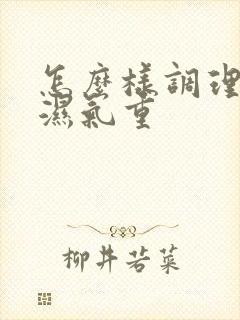 怎麽樣調理
濕氣重
柳井若菜